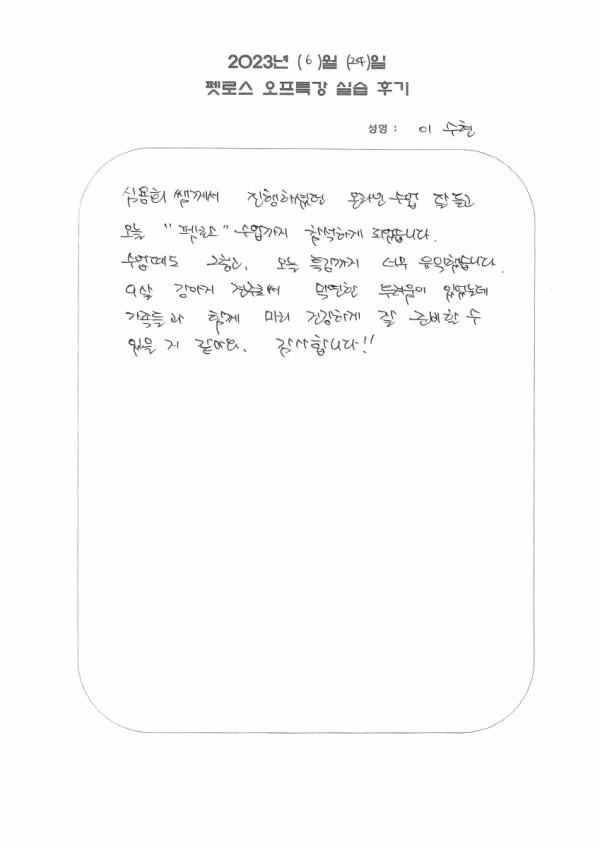 2023년 (6)월 (24)일
펫로스 오프특강 실습 후기
성명 : 이 수현
심용희 쌤께서 진행하셨던 온라인 수업 잘 듣고
오늘 "펫로스" 수업까지 참석하게 되었습니다.
수업때도 그렇고, 오늘 특강까지 너무 유익했습니다.
9살 강아지 견주로서 막연한 두려움이 있었는데
가족들과 함께 미리 건강하게 잘 준비할 수
있을 거 같아요. 감사합니다!!